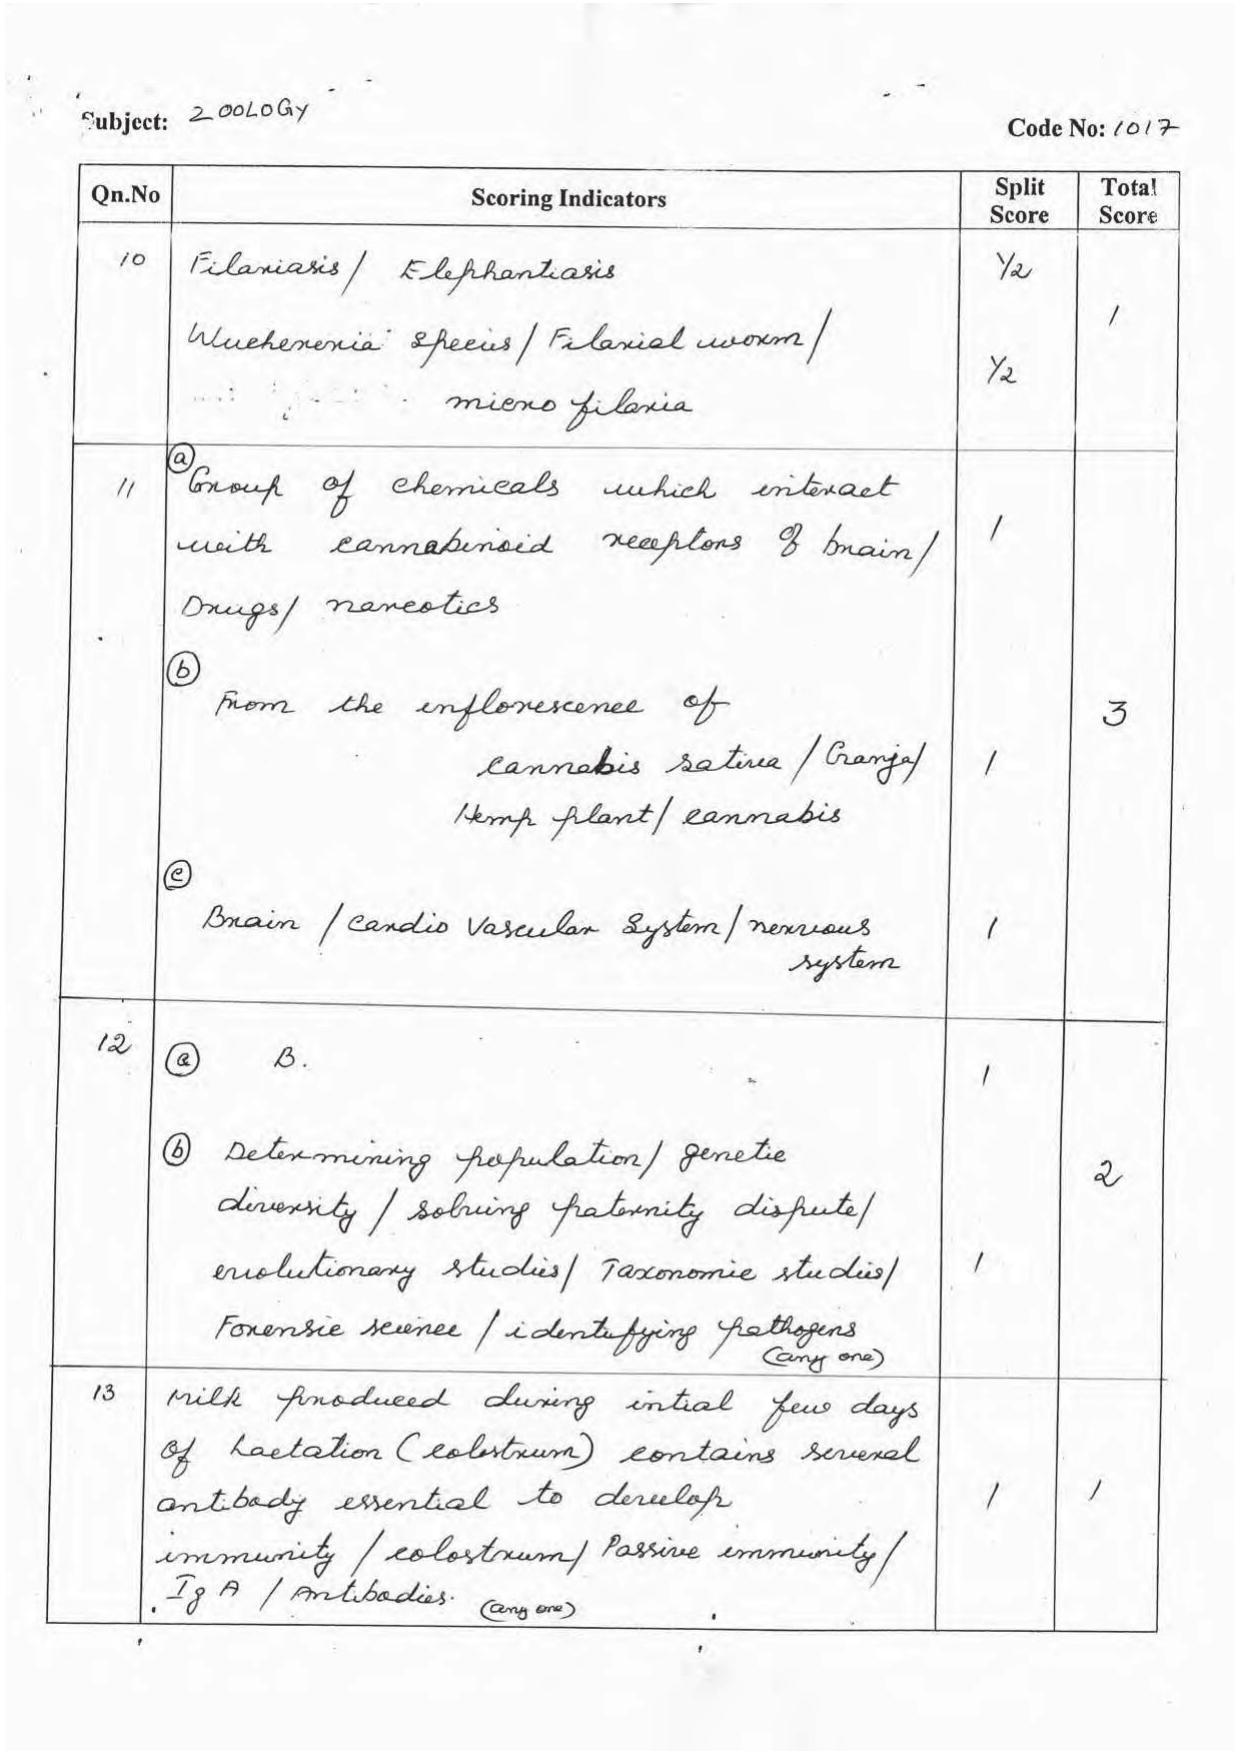 Subject: ZOOLOGY
Code No: 1017
Qn.No Scoring Indicators Split Score Total Score
10 Filariasis / Elephantiasis ½
1
Wuchereria species / Filarial worm /
½
micro filaria
11 (a) Group of chemicals which interact
with cannabinoid receptors of brain / 1
Drugs / narcotics
(b)
From the inflorescence of
3
cannabis sativa / Ganja / 1
Hemp plant / cannabis
(c)
Brain / Cardio Vascular System / nervous 1
system
12 (a) B. 1
(b) Determining population / genetic
2
diversity / solving paternity dispute /
evolutionary studies / Taxonomic studies / 1
Forensic science / identifying pathogens
(any one)
13 Milk produced during intial few days
of Lactation (colostrum) contains several
antibody essential to develop 1 1
immunity / colostrum / Passive immunity /
IgA / Antibodies. (any one)